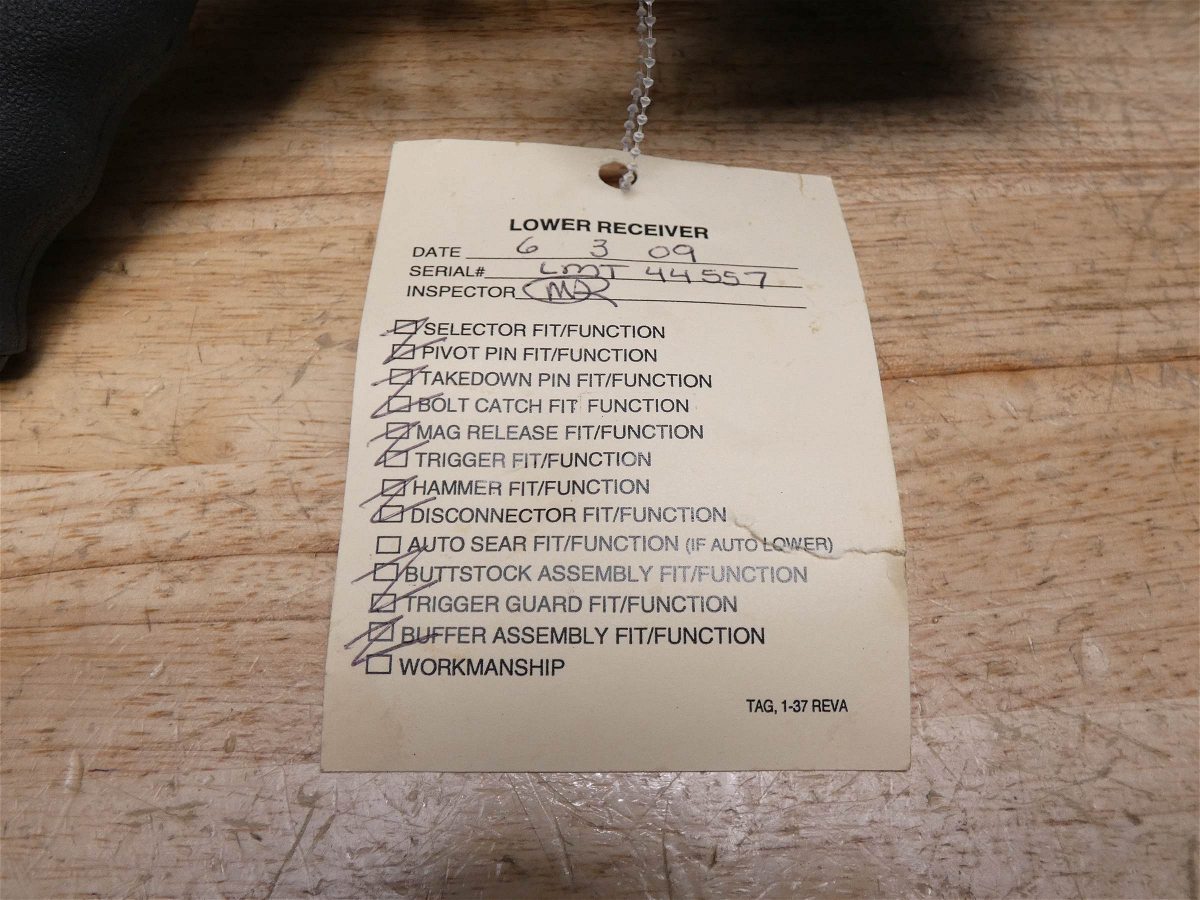 LOWER RECEIVER
DATE 6 3 09
SERIAL# LMT 44557
INSPECTOR
SELECTOR FIT/FUNCTION
PIVOT PIN FIT/FUNCTION
TAKEDOWN PIN FIT/FUNCTION
BOLT CATCH FIT FUNCTION
MAG RELEASE FIT/FUNCTION
TRIGGER FIT/FUNCTION
HAMMER FIT/FUNCTION
DISCONNECTOR FIT/FUNCTION
AUTO SEAR FIT/FUNCTION (IF AUTO LOWER)
BUTTSTOCK ASSEMBLY FIT/FUNCTION
TRIGGER GUARD FIT/FUNCTION
BUFFER ASSEMBLY FIT/FUNCTION
WORKMANSHIP
TAG, 1-37 REVA